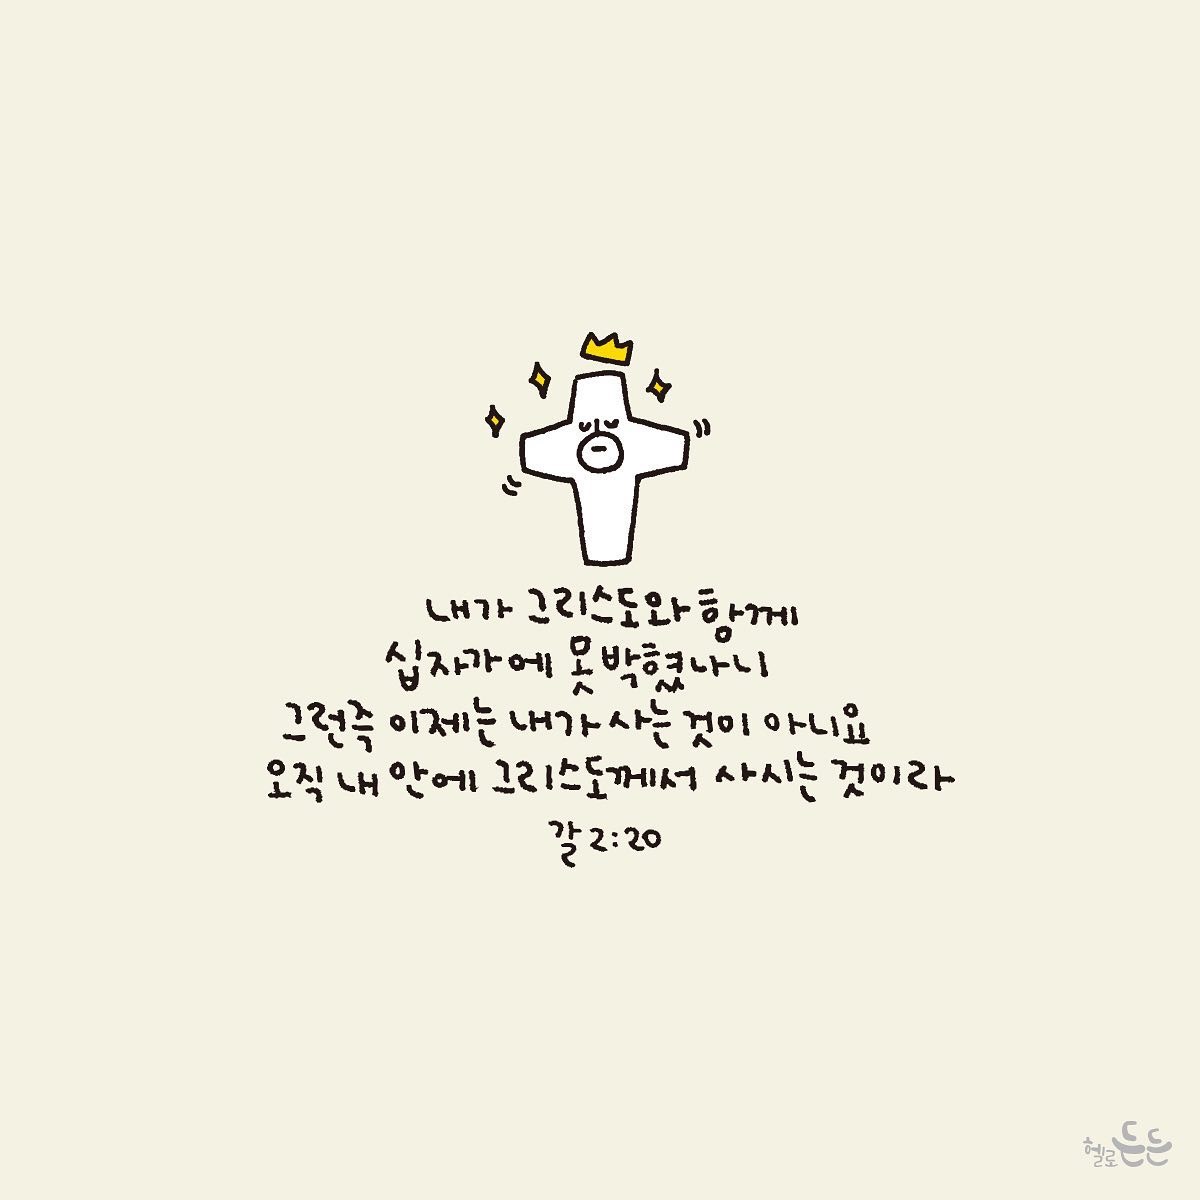 내가 그리스도와 함께
십자가에 못박혔나니
그런즉 이제는 내가 사는 것이 아니요
오직 내 안에 그리스도께서 사시는 것이라
갈 2:20
헬로든든